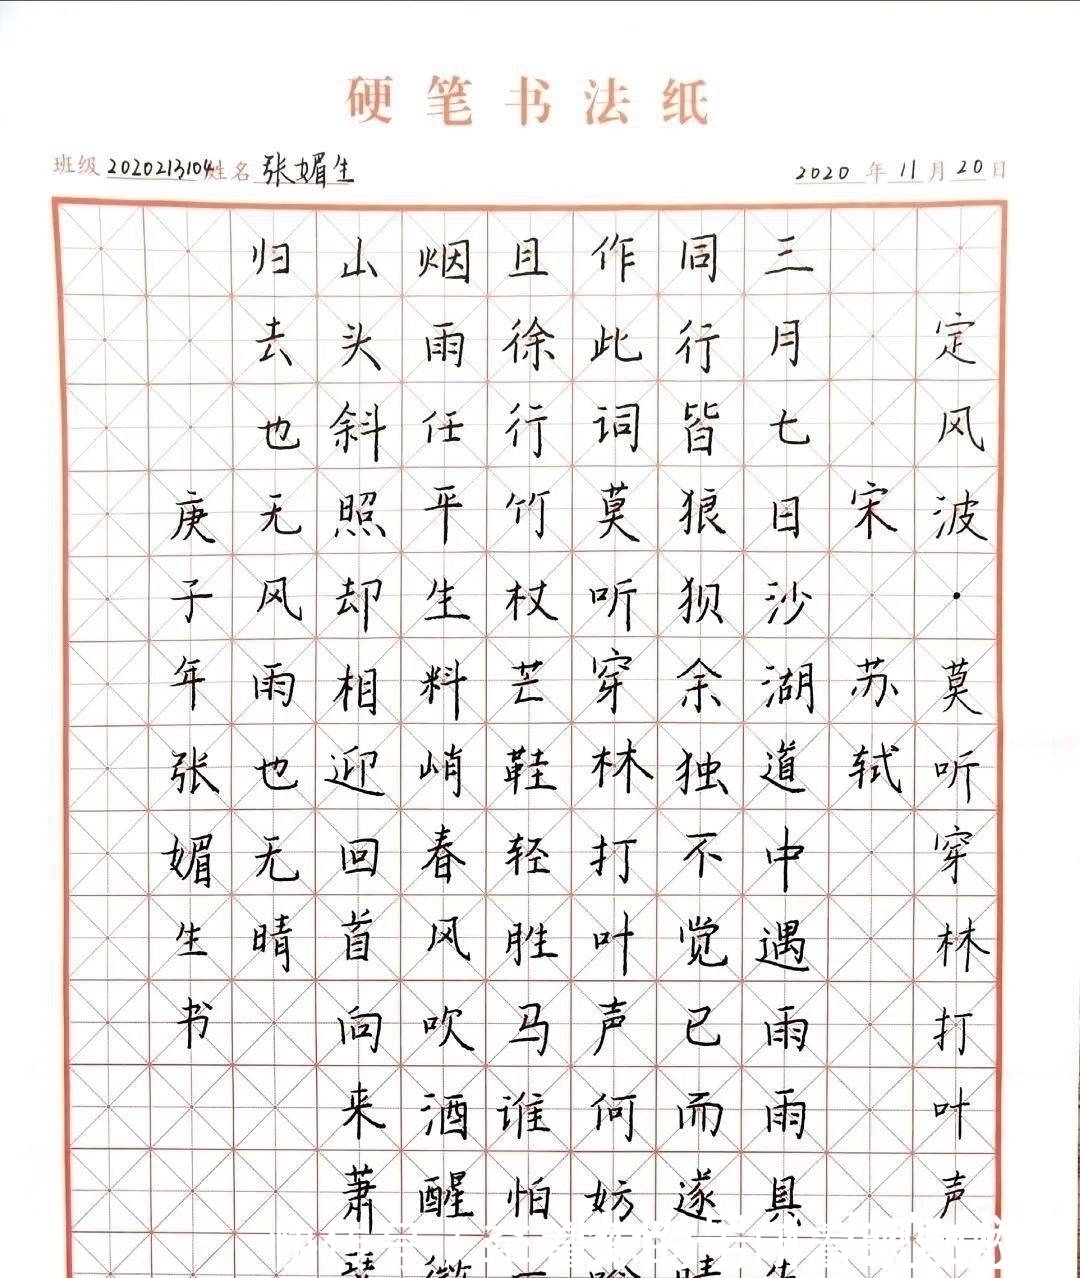 硬笔书法纸
班级 2020213104 姓名 张媚生 2020 年 11 月 20 日
定风波·莫听穿林打叶声
宋 苏轼
三月七日沙湖道中遇雨雨具
同行皆狼狈余独不觉已而遂
作此词莫听穿林打叶声何妨
且徐行竹杖芒鞋轻胜马谁怕
烟雨任平生料峭春风吹酒醒
山头斜照却相迎回首向来萧
归去也无风雨也无晴
庚子年张媚生书